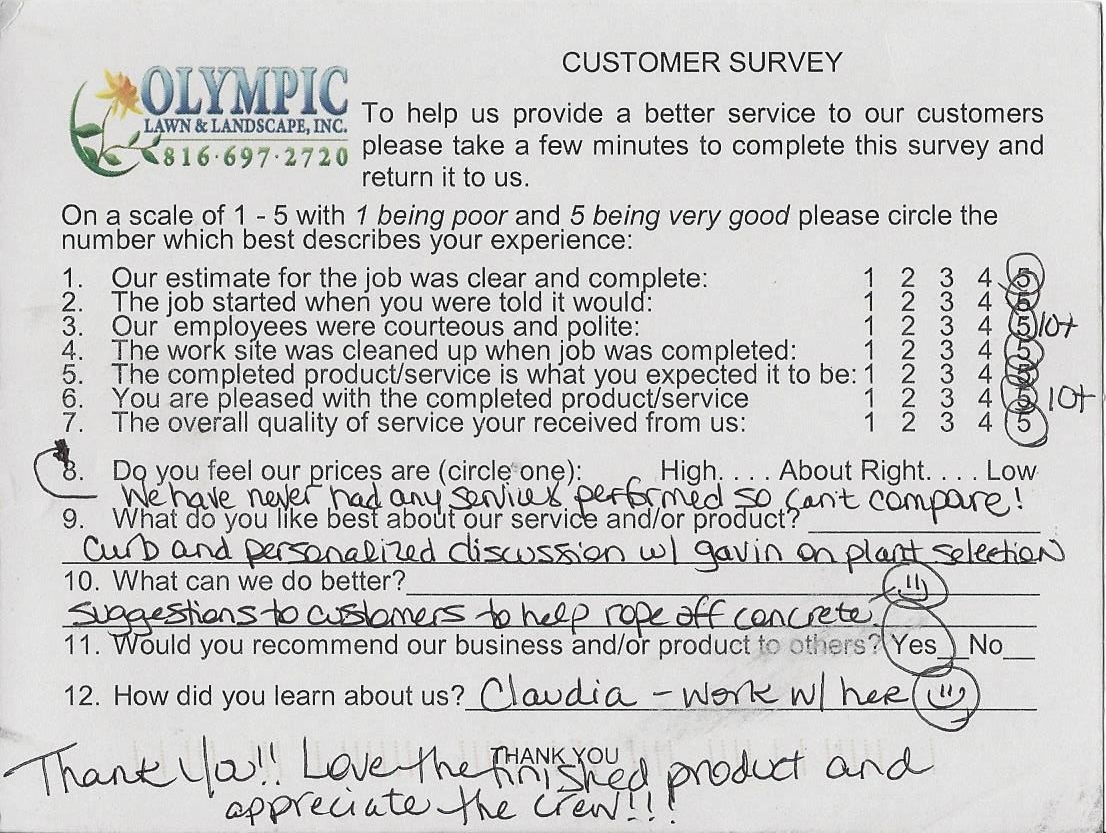 CUSTOMER SURVEY
OLYMPIC
LAWN & LANDSCAPE, INC.
816·697·2720
To help us provide a better service to our customers
please take a few minutes to complete this survey and
return it to us.
On a scale of 1 - 5 with 1 being poor and 5 being very good please circle the
number which best describes your experience:
1. Our estimate for the job was clear and complete: 1 2 3 4 5
2. The job started when you were told it would: 1 2 3 4 5
3. Our employees were courteous and polite: 1 2 3 4 5 10+
4. The work site was cleaned up when job was completed: 1 2 3 4 5
5. The completed product/service is what you expected it to be: 1 2 3 4 5
6. You are pleased with the completed product/service 1 2 3 4 5 10+
7. The overall quality of service your received from us: 1 2 3 4 5
8. Do you feel our prices are (circle one): High. . . . About Right. . . . Low
We have never had any services performed so can't compare!
9. What do you like best about our service and/or product?
Curb and personalized discussion w/ gavin on plant selection
10. What can we do better?
suggestions to customers to help rope off concrete.
11. Would you recommend our business and/or product to others? Yes__No__
12. How did you learn about us? Claudia - work w/ her
THANK YOU
Thank Ya!! Love the finished product and
appreciate the crew!!!